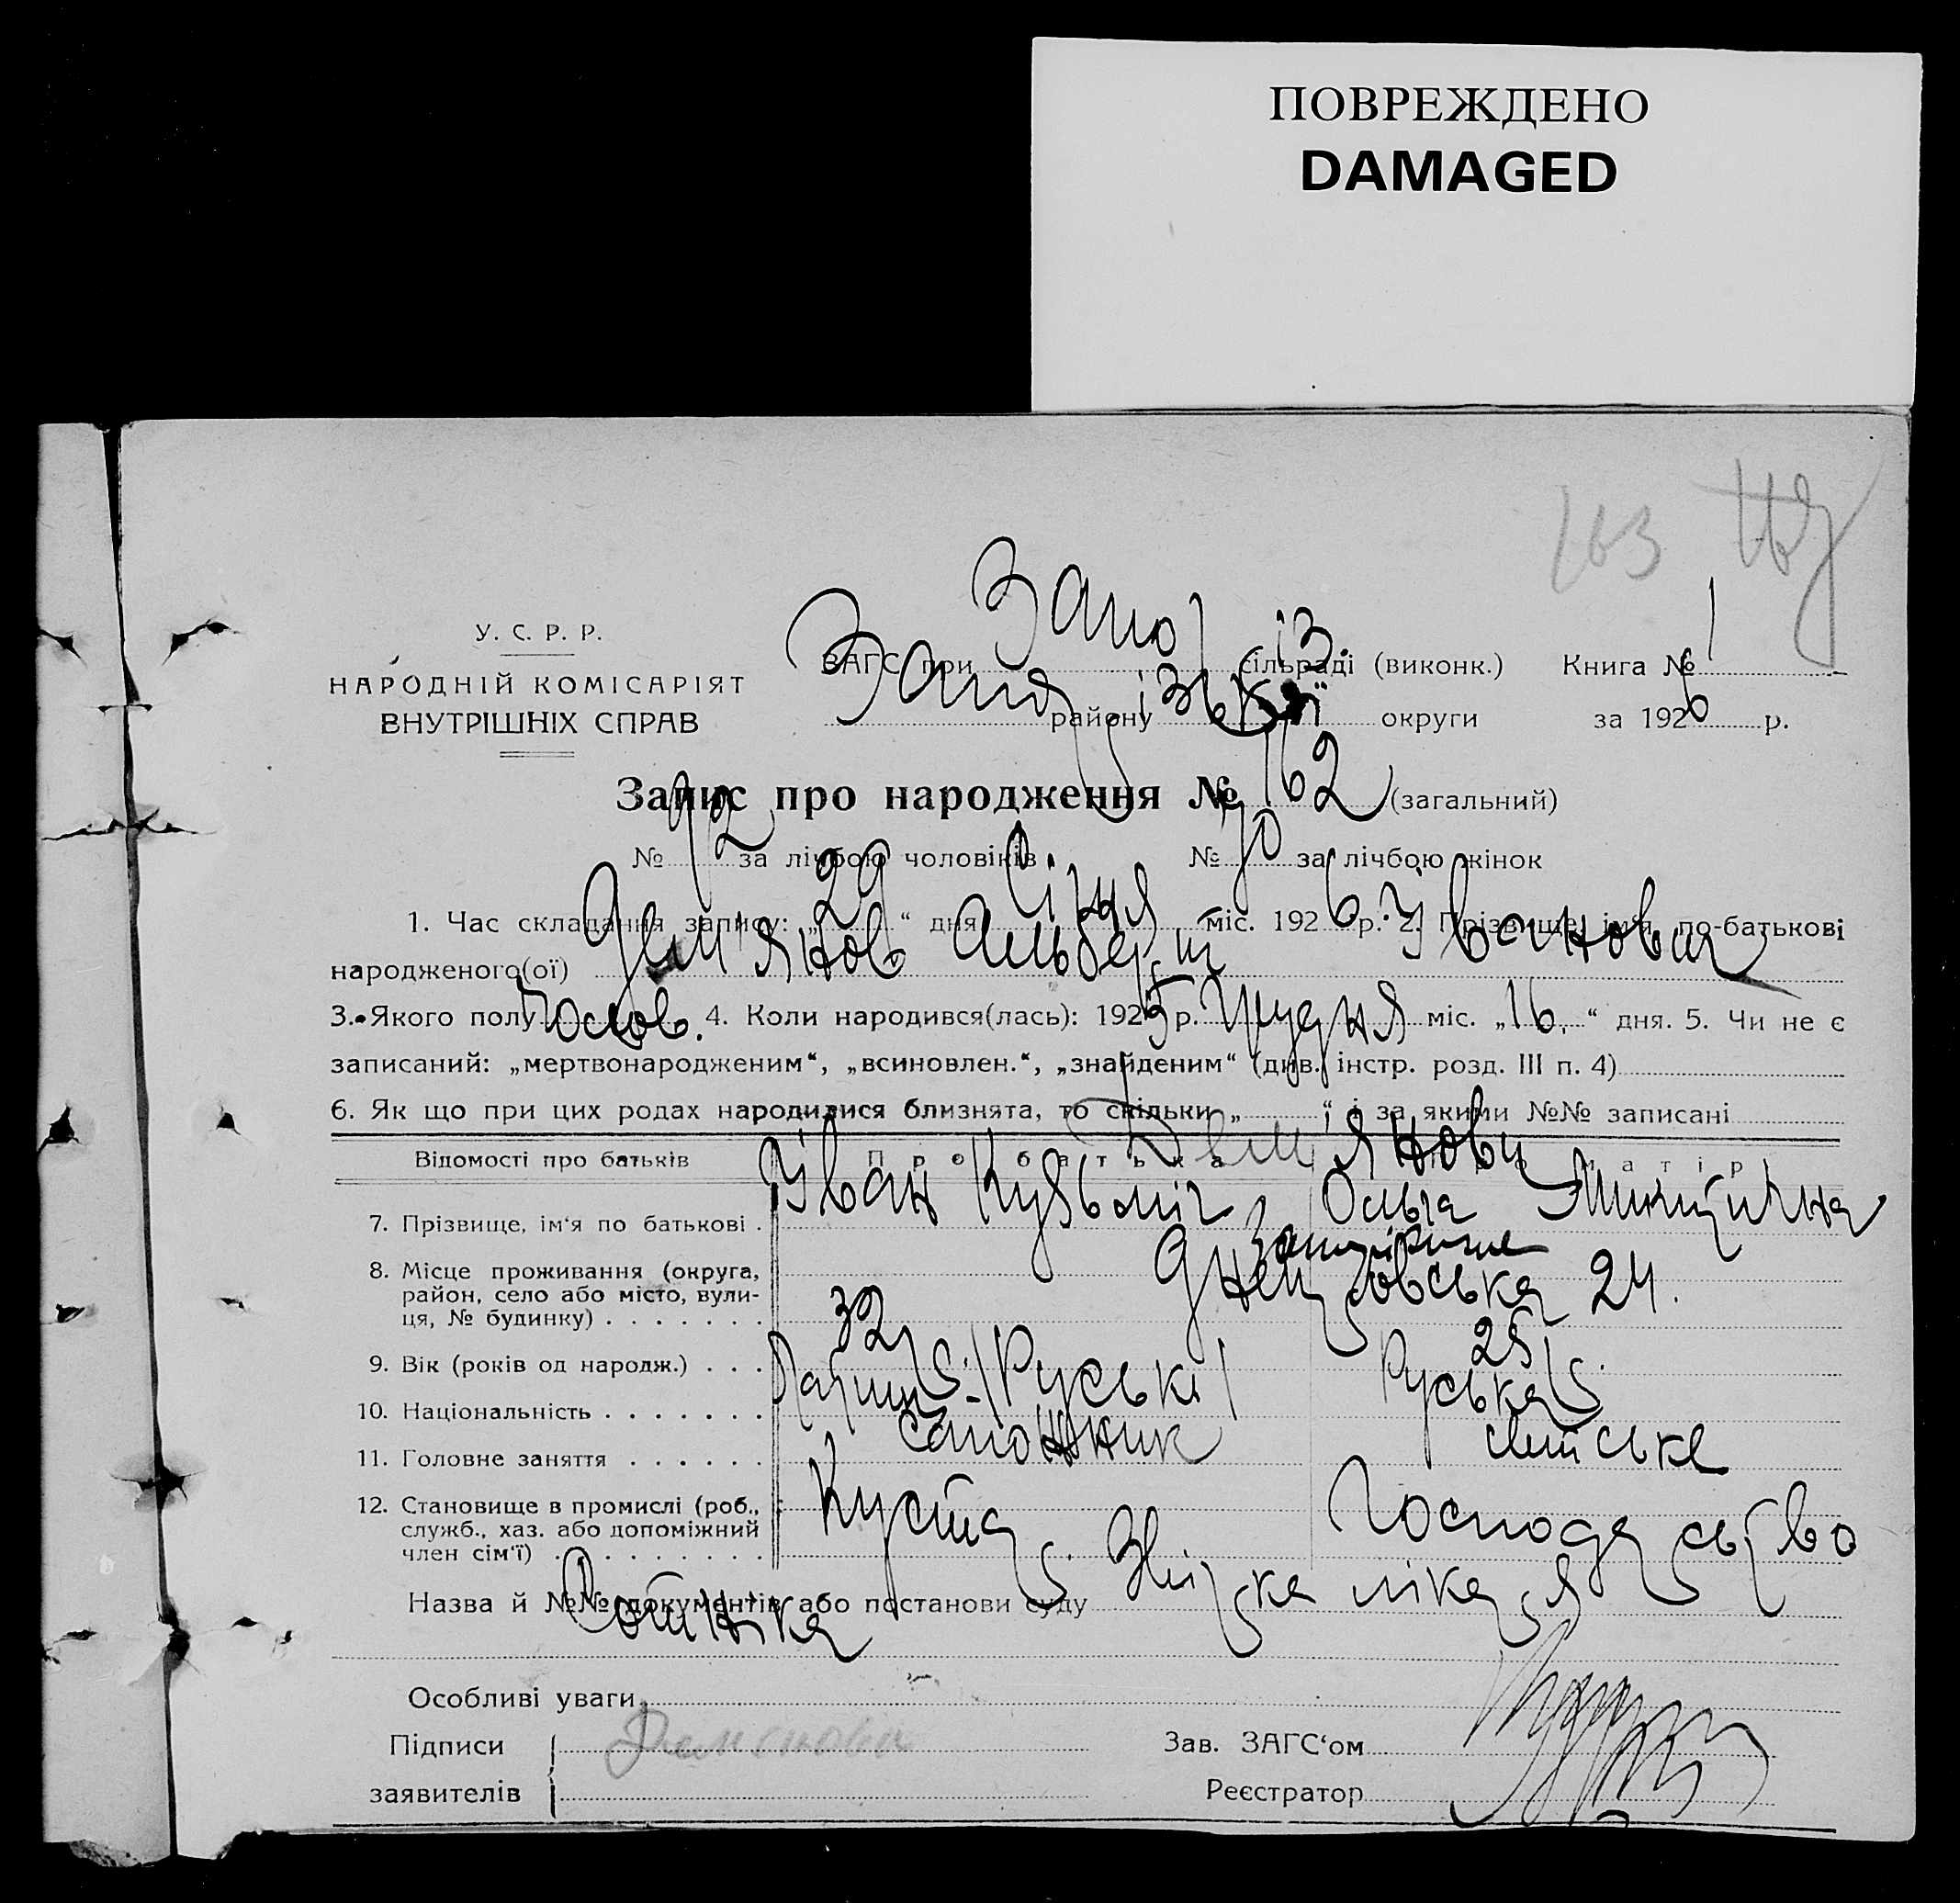 ПОВРЕЖДЕНО
DAMAGED
163
У. С. Р. Р.
НАРОДНІЙ КОМІСАРІЯТ
ВНУТРІШНІХ СПРАВ
ЗАГС при Запоріз. сільраді (виконк.) Книга № 1
району Запорізької округи за 1926 р.
Запис про народження № 162 (загальний)
№ 92 за лічбою чоловіків № 70 за лічбою жінок
1. Час складання запису: „29“ дня Січня міс. 1926 р. 2. Прізвище, ім'я, по-батькові
народженого(ої) Дем'янов Альберт Іванович
3. Якого полу чолов. 4. Коли народився(лась): 1925 р. Грудня міс. „16“ дня. 5. Чи не є
записаний: „мертвонародженим“, „всиновлен.“, „знайденим“ (див. інстр. розд. III п. 4)
6. Як що при цих родах народилися близнята, то скільки „ “ і за якими №№ записані
Відомості про батьків Про батька Про матір
Дем'янови
7. Прізвище, ім'я по батькові . Іван Кузьміч Ольга Микитична
8. Місце проживання (округа, район, село або місто, вулиця, № будинку) Запоріжже
Днепровська 24.
9. Вік (років од народж.) . . . 32 р. 25 р.
10. Національність Руські Руська
11. Головне заняття сапожник
12. Становище в промислі (роб., служб., хаз. або допоміжний член сім'ї) Кустар. Господарство
Назва й №№ документів або постанови суду Звірка лікаря
Сотніка
Особливі уваги
Підписи
заявителів
Зав. ЗАГС'ом
Реєстратор